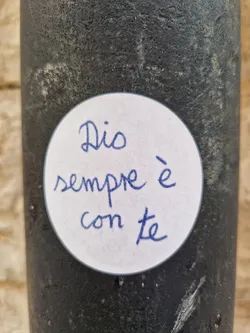 Dio
sempre è
con te